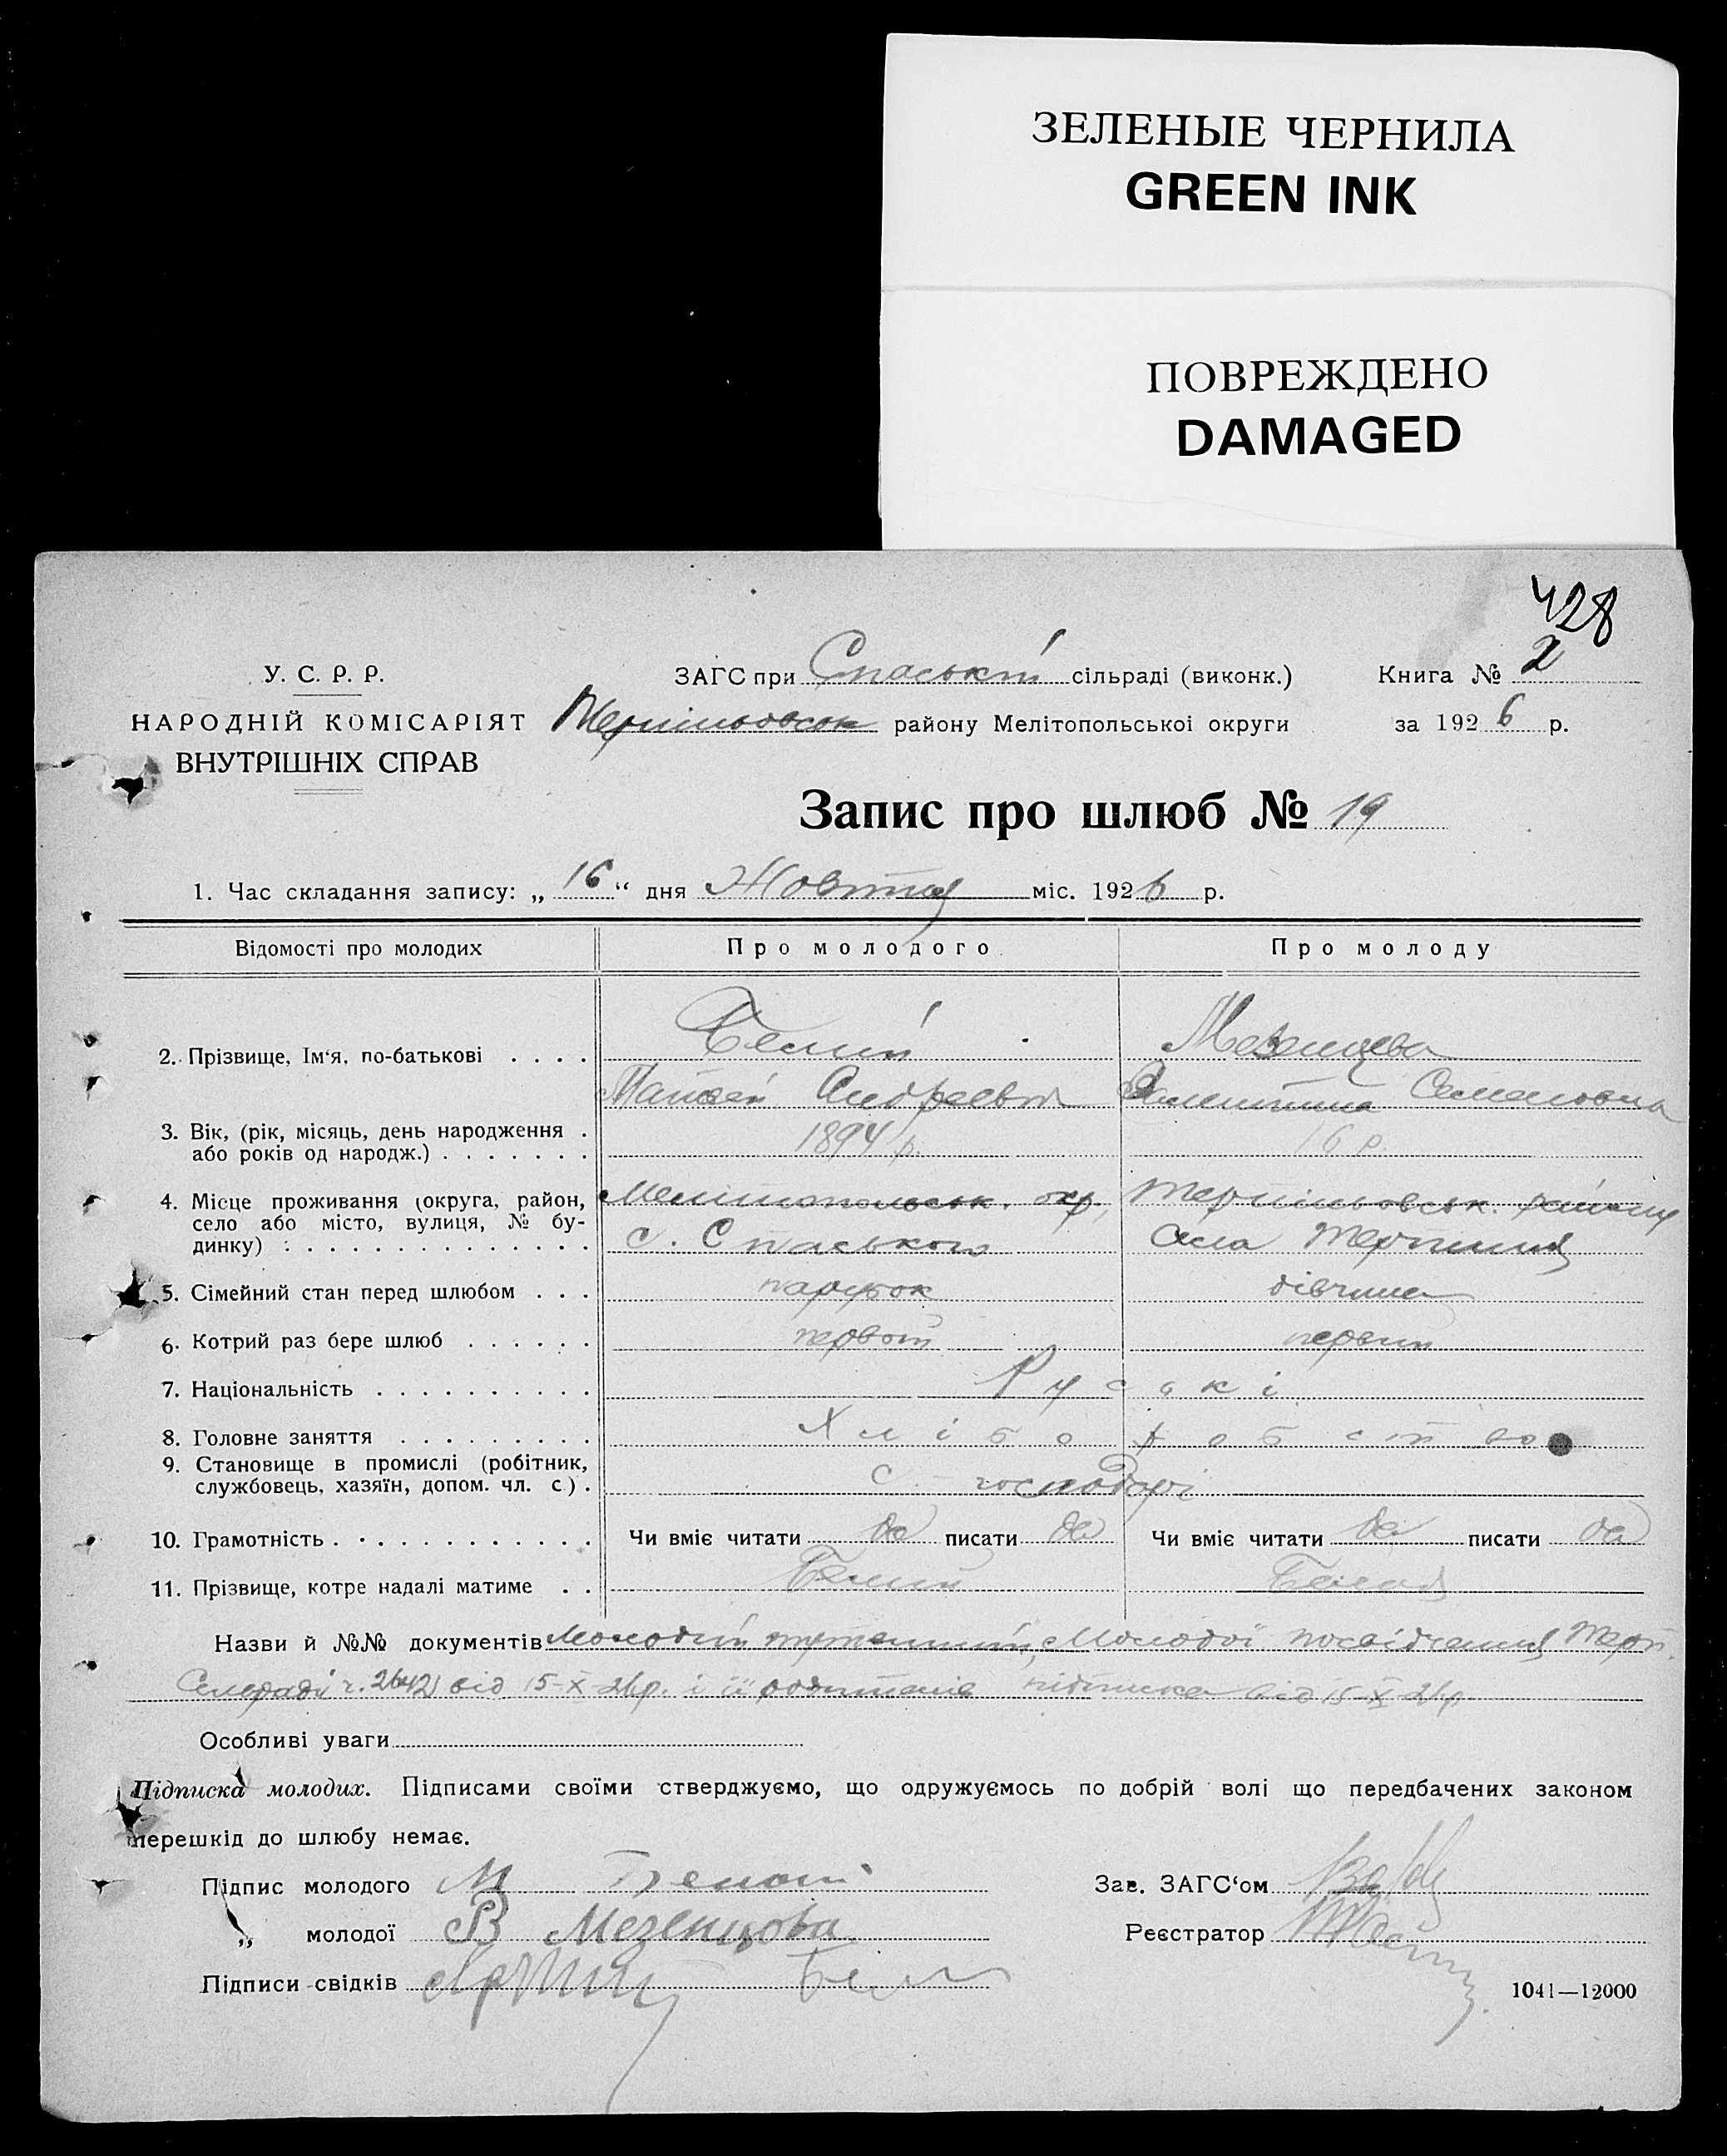 ЗЕЛЕНЫЕ ЧЕРНИЛА
GREEN INK
ПОВРЕЖДЕНО
DAMAGED
428
У. С. Р. Р.
ЗАГС при Спаській сільраді (виконк.) Книга № 2
НАРОДНІЙ КОМІСАРІЯТ
ВНУТРІШНІХ СПРАВ
Терпіньовськ району Мелітопольської округи за 1926 р.
Запис про шлюб № 19
1. Час складання запису: „ 16 “ дня Жовтня міс. 1926 р.
Відомості про молодих Про молодого Про молоду
2. Прізвище, Ім‘я, по-батькові . . . . Белий Мезенцева
Андреевич Валентина Семеновна
3. Вік, (рік, місяць, день народження . 1894 р. 16 р.
або років од народж.) . . . . . . .
4. Місце проживання (округа, район, Мелітопольськ. окр., Терпіньовськ. району
село або місто, вулиця, № бу-
динку) . . . . . . . . . . . . . . с. Спаського села Терпіння
5. Сімейний стан перед шлюбом . . . парубок дівчина
6. Котрий раз бере шлюб . . . . . . первий первий
7. Національність . . . . . . . . . . Руські
8. Головне заняття . . . . . . . . . Хліборобство
9. Становище в промислі (робітник,
службовець, хазяїн, допом. чл. с.) . С. господарі
10. Грамотність . . . . . . . . . . . . Чи вміє читати да писати да Чи вміє читати да писати да
11. Прізвище, котре надалі матиме . . Белий Белая
Назви й №№ документів Молодий Молодої посвідчення Терп.
Сельради ч. 2642 від 15-X-26р. і її підписка від 15-X-26р
Особливі уваги
Підписка молодих. Підписами своїми стверджуємо, що одружуємось по добрій волі що передбачених законом
перешкід до шлюбу немає.
Підпис молодого М Белой Зав. ЗАГС‘ом
„ молодої В Мезенцова Реєстратор
Підписи свідків
1041—12000